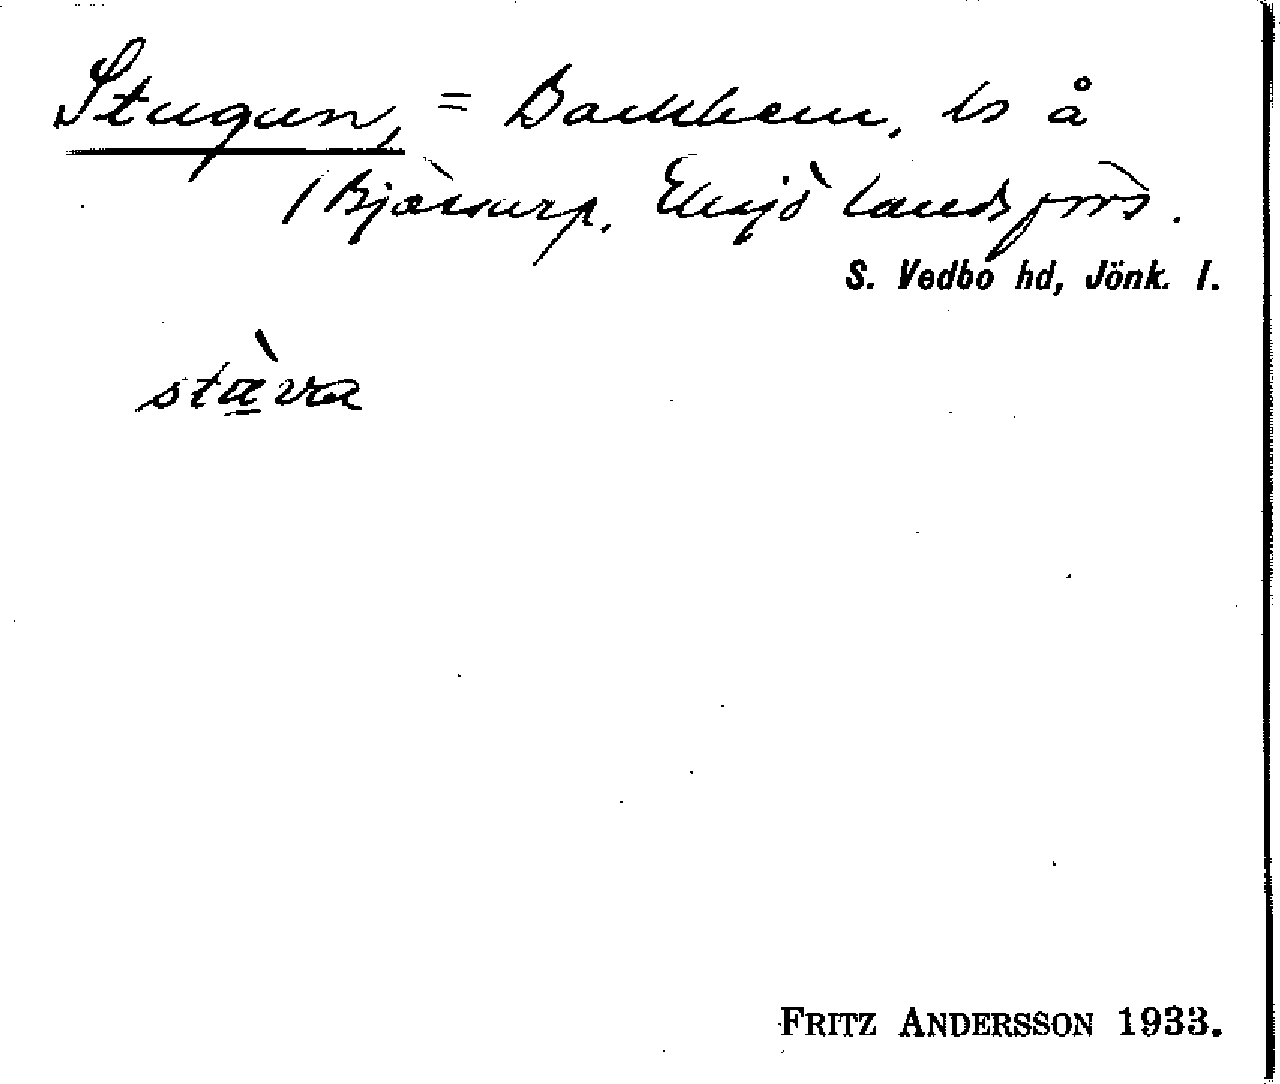 Stugan, = Backhem, ls å
/ Bjässarp, Eksjö landsförs.
S. Vedbo hd, Jönk. l.
stäva
FRITZ ANDERSSON 1933.